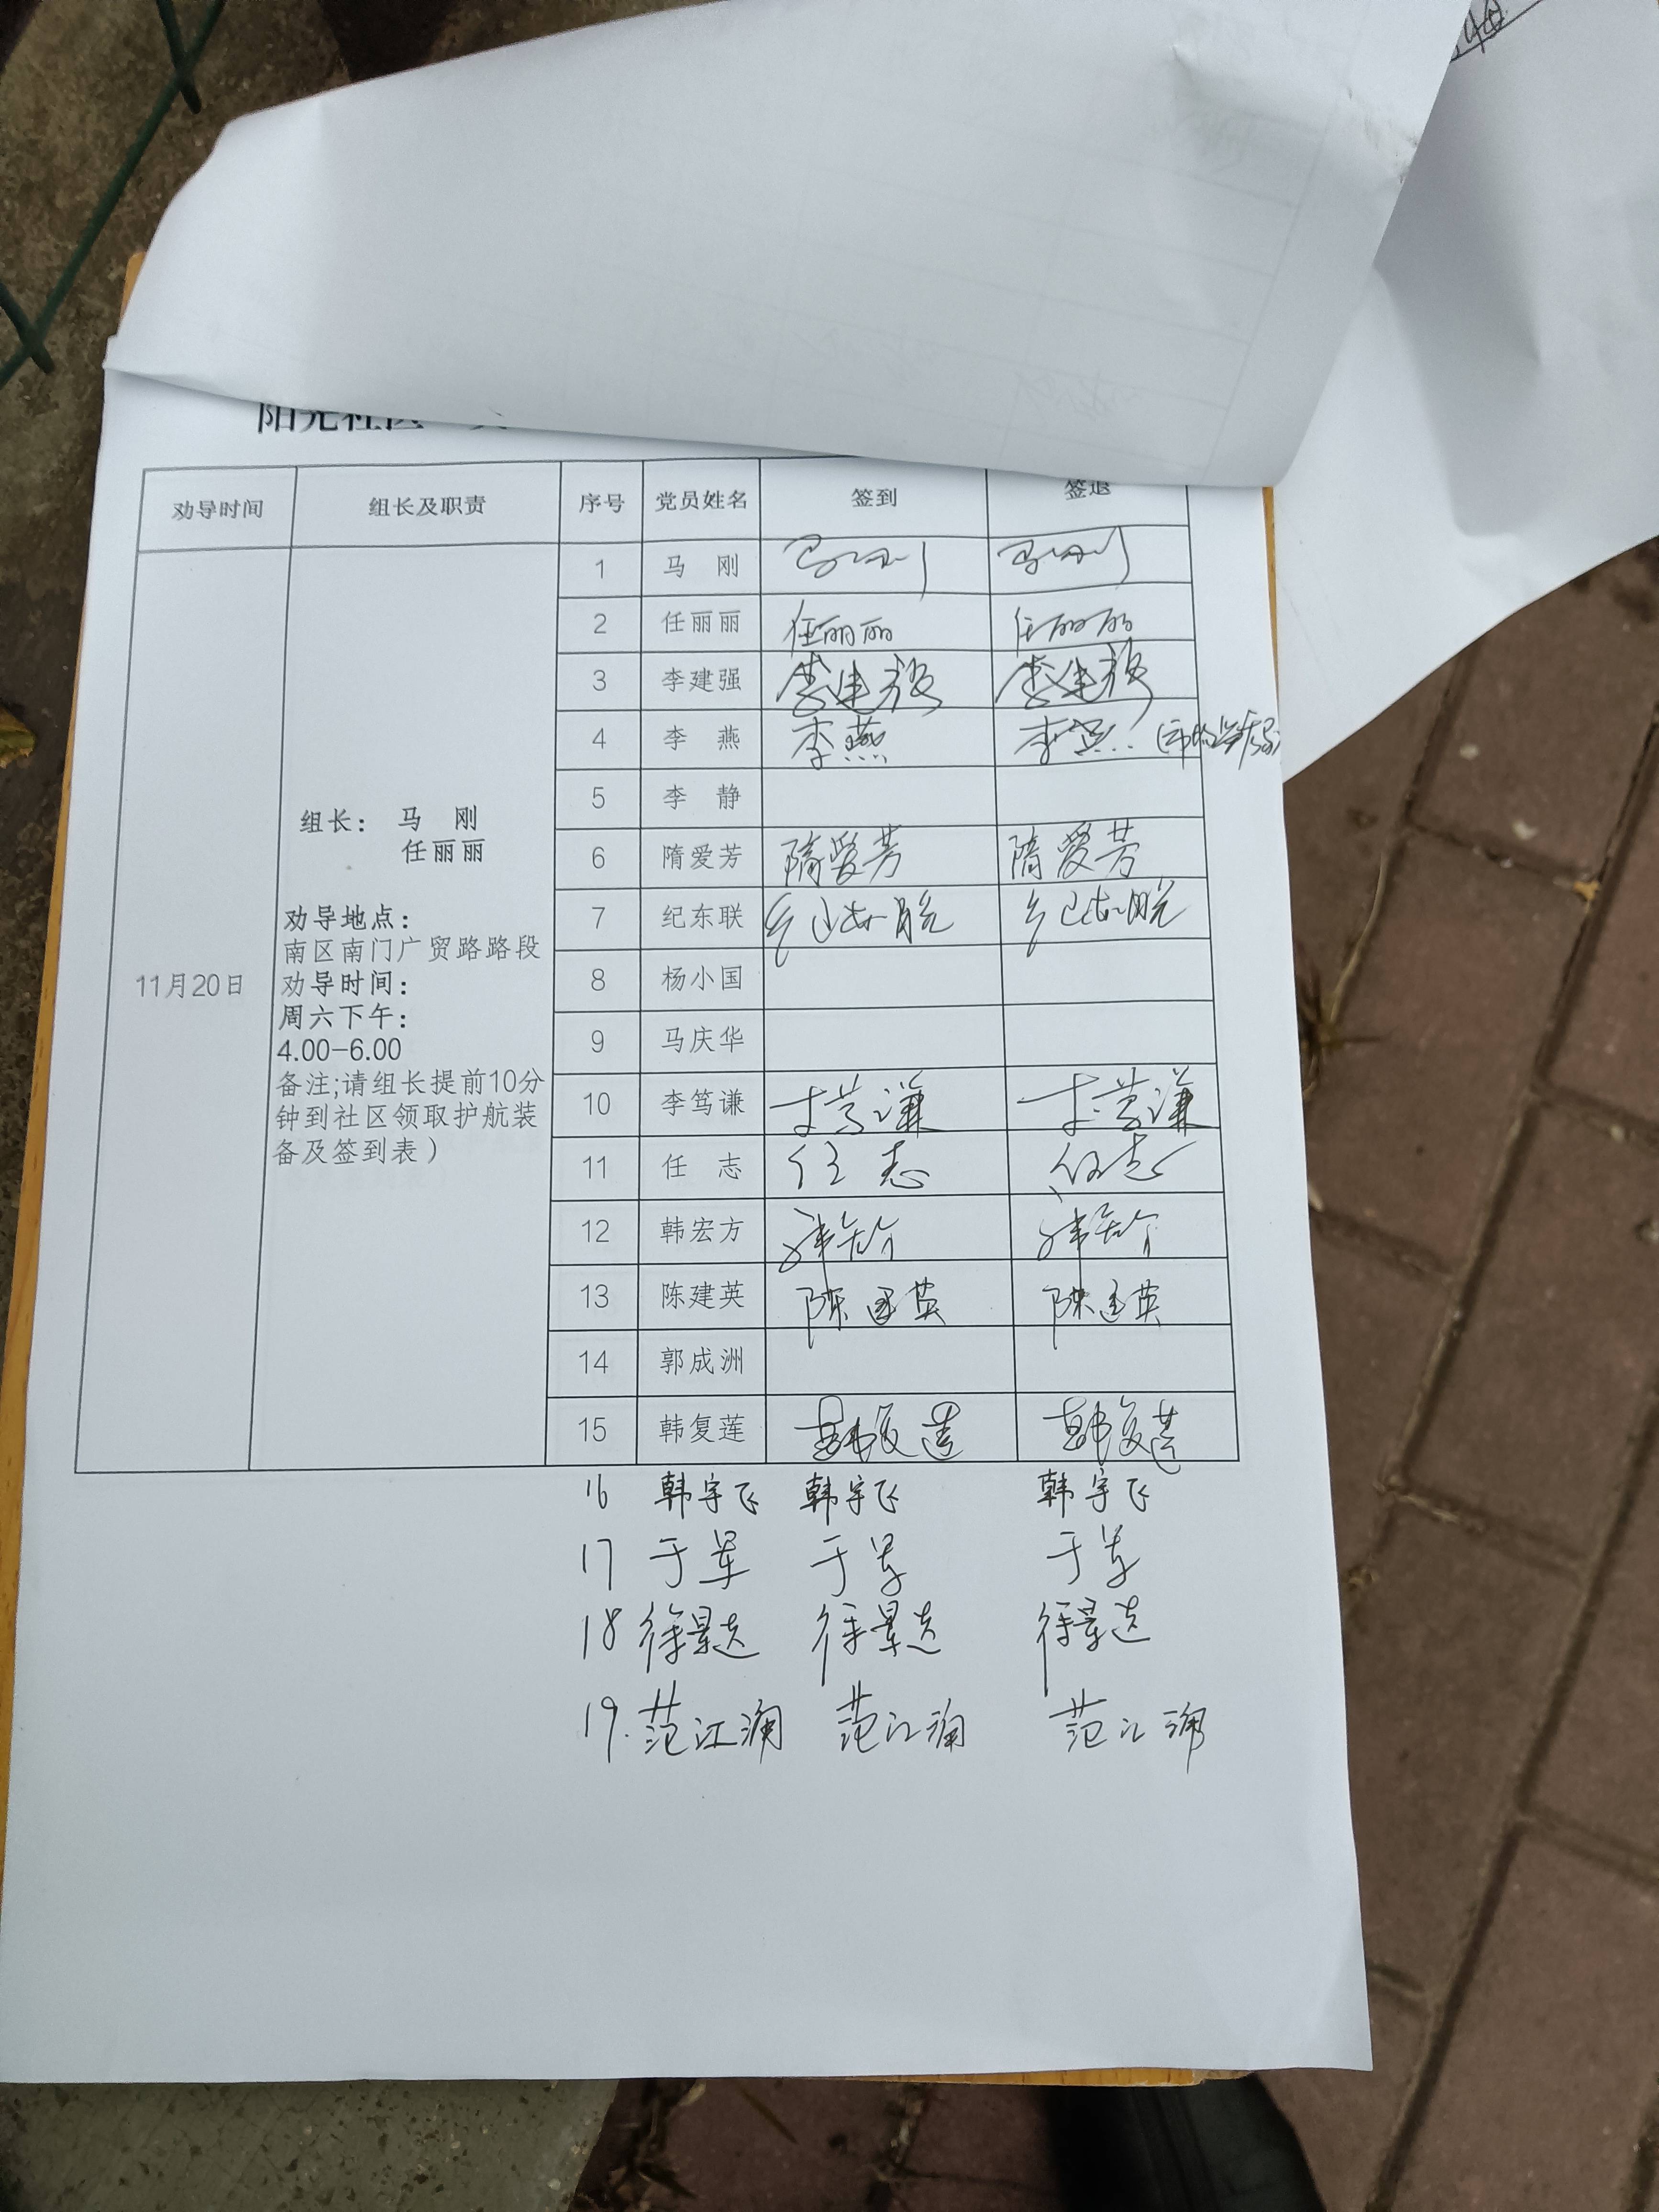 阳光社区
劝导时间 组长及职责 序号 党员姓名 签到 签退
11月20日
组长： 马 刚
任丽丽
劝导地点：
南区南门广贸路路段
劝导时间：
周六下午：
4.00-6.00
备注;请组长提前10分
钟到社区领取护航装
备及签到表）
1 马 刚 马刚 马刚
2 任丽丽 任丽丽 任丽丽
3 李建强 李建强 李建强
4 李 燕 李燕 李燕
5 李 静
6 隋爱芳 隋爱芳 隋爱芳
7 纪东联
8 杨小国
9 马庆华
10 李笃谦 李笃谦 李笃谦
11 任 志 任志 任志
12 韩宏方 韩宏方 韩宏方
13 陈建英 陈建英 陈建英
14 郭成洲
15 韩复莲 韩复莲 韩复莲
16 韩宇飞 韩宇飞 韩宇飞
17 于军 于军 于军
18 徐景选 徐景选 徐景选
19. 范江澜 范江澜 范江澜